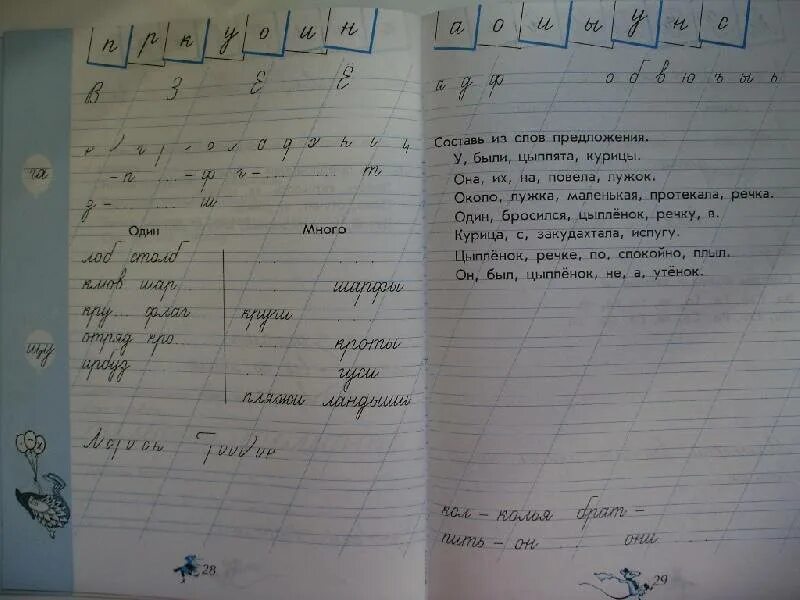 п р к у о и н
В З Е Ё
- п ... - ф г - ... т
з - ... ш
Один Много
лоб столб
клюв шар ... шарфы
кру... флаг круги
отряд кро... кроты
арбуз ... гуси
пляжи ландыши
28
а о и ы у н с
а д ф о б в ю ъ ы ь
Составь из слов предложения.
У, были, цыплята, курицы.
Она, их, на, повела, лужок.
Около, лужка, маленькая, протекала, речка.
Один, бросился, цыплёнок, речку, в.
Курица, с, закудахтала, испугу.
Цыплёнок, речке, по, спокойно, плыл.
Он, был, цыплёнок, не, а, утёнок.
кол - колья брат -
пить - он ... они ...
29